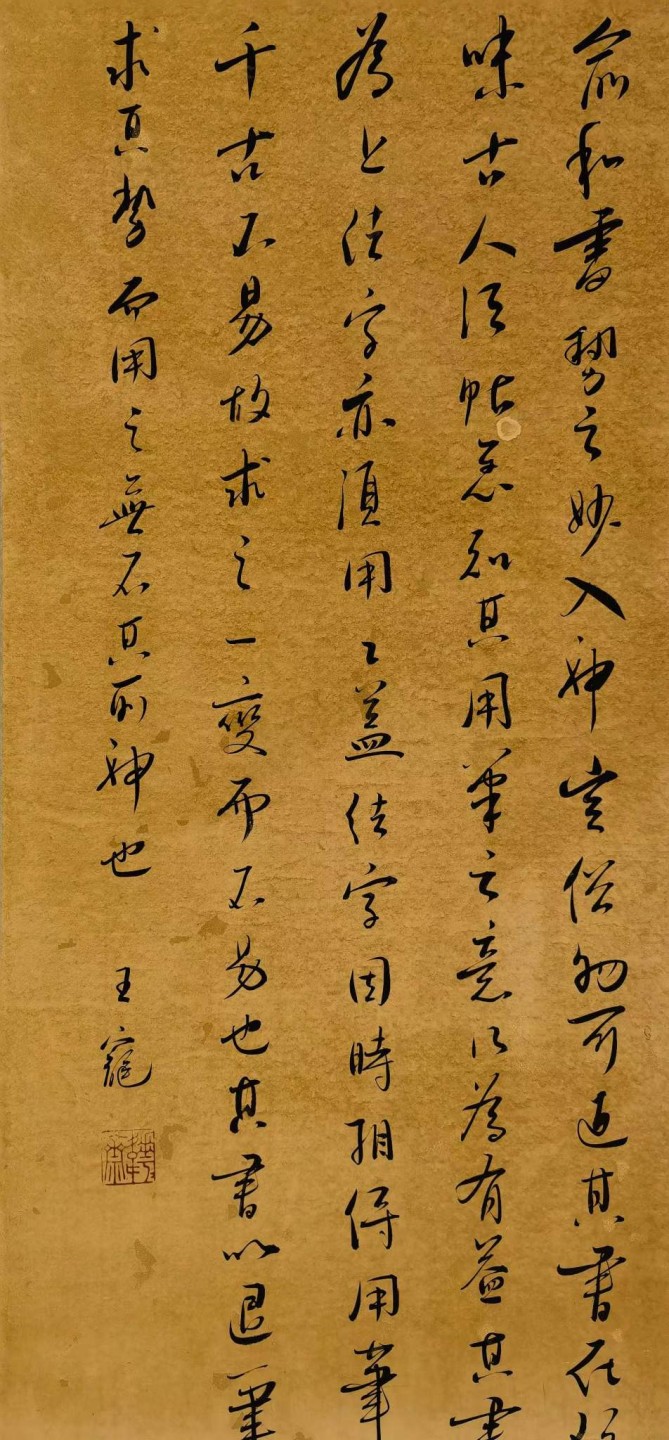 俞和書勢之妙入神豈俗物可近其書在
味古人法帖悉知其用筆之意以為有益其書
為上結字亦須用工蓋結字因時相傳用筆
千古不易故求之一變而不易也其書以退筆
求其勢而用之無不其所神也 王寵